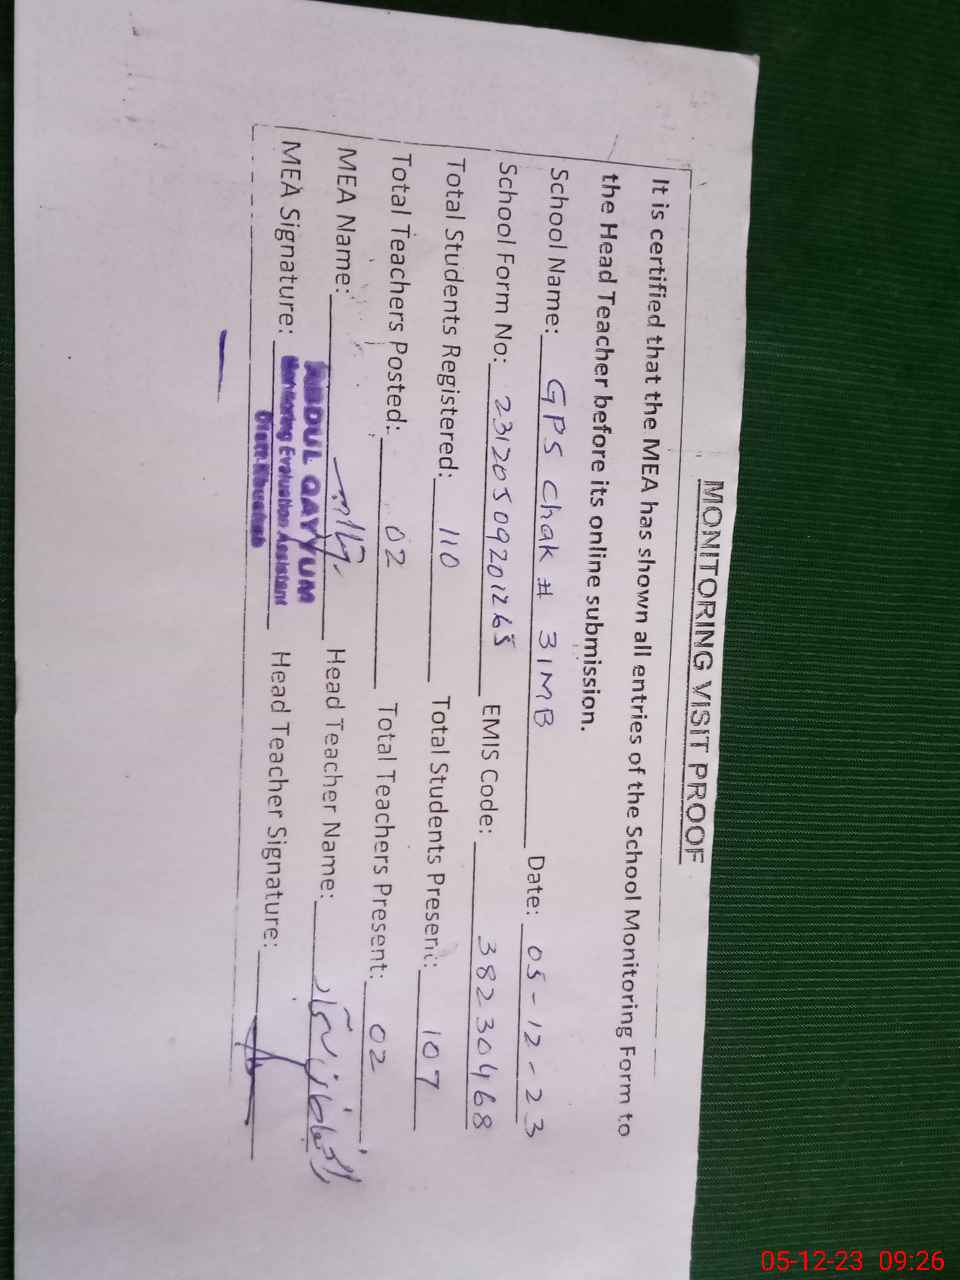 MONITORING VISIT PROOF
It is certified that the MEA has shown all entries of the School Monitoring Form to
the Head Teacher before its online submission.
School Name: GPS Chak # 31MB Date: 05-12-23
School Form No: 23120509201265 EMIS Code: 38230468
Total Students Registered: 110 Total Students Present: 107
Total Teachers Posted: 02 Total Teachers Present: 02
MEA Name: Head Teacher Name:
ABDUL QAYYUM
MEA Signature: Monitoring Evaluation Assistant Head Teacher Signature:
Distt Khushab
05-12-23 09:26